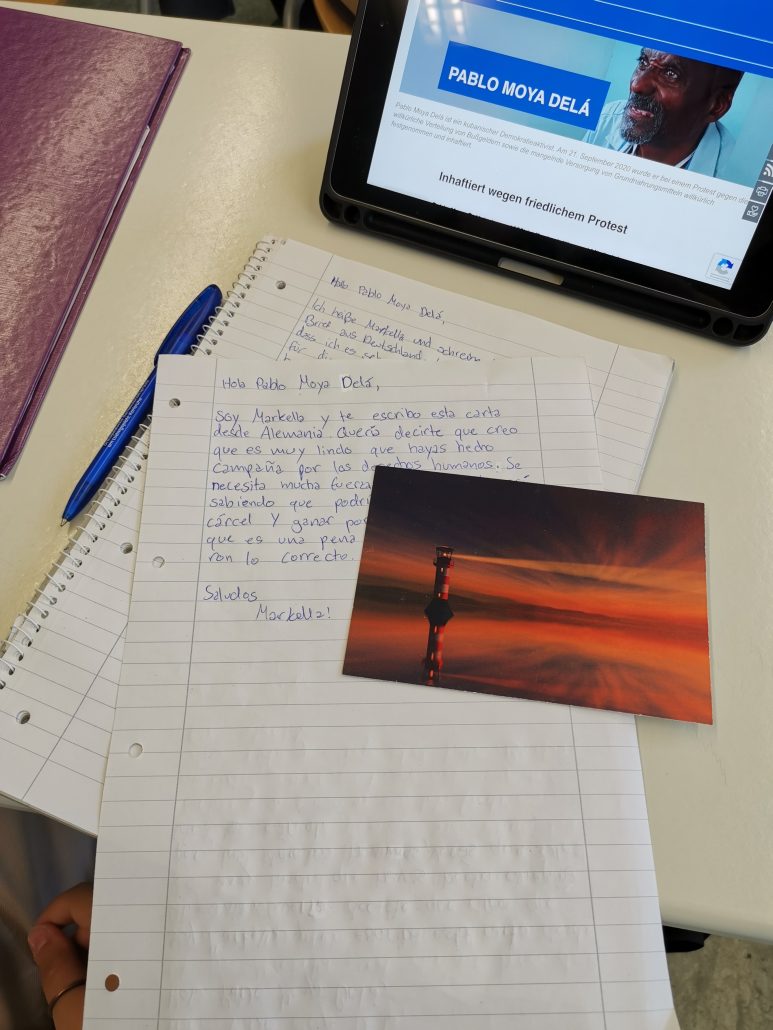 PABLO MOYA DELÁ
Pablo Moya Delá ist ein kubanischer Demokratieaktivist. Am 21. September 2020 wurde er bei einem Protest gegen die
willkürliche Verteilung von Bußgeldern sowie die mangelnde Versorgung von Grundnahrungsmitteln willkürlich
festgenommen und inhaftiert.
Inhaftiert wegen friedlichem Protest
Hola Pablo Moya Delá,
Ich heiße Markella und schreibe
Brief aus Deutschland
dass ich es
für
Hola Pablo Moya Delá,
Soy Markella y te escribo esta carta
desde Alemania. Quería decirte que creo
que es muy lindo que hayas hecho
campaña por los derechos humanos. Se
necesita mucha fuerza
sabiendo que podrí
cárcel Y ganar
que es una pena
ron lo correcto.
Saludos
Markella!